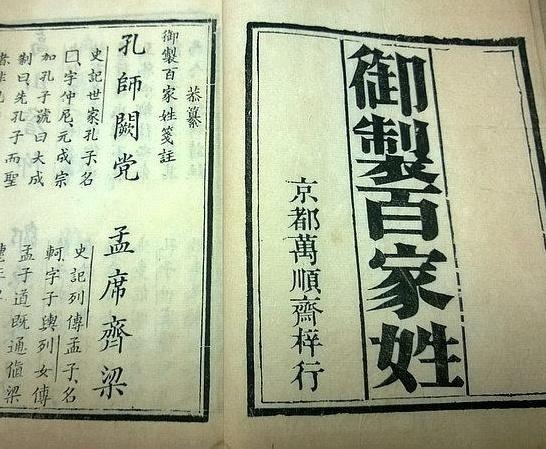 御製百家姓
京都萬順齋梓行
御製百家姓箋註
恭纂
孔師闕党 孟席齊梁
史記世家孔子名
囗字仲尼元成宗
加孔子號曰大成
制曰先孔子而聖
者非孔
史記列傳孟子名
軻字子輿列女傳
孟子道既通値梁